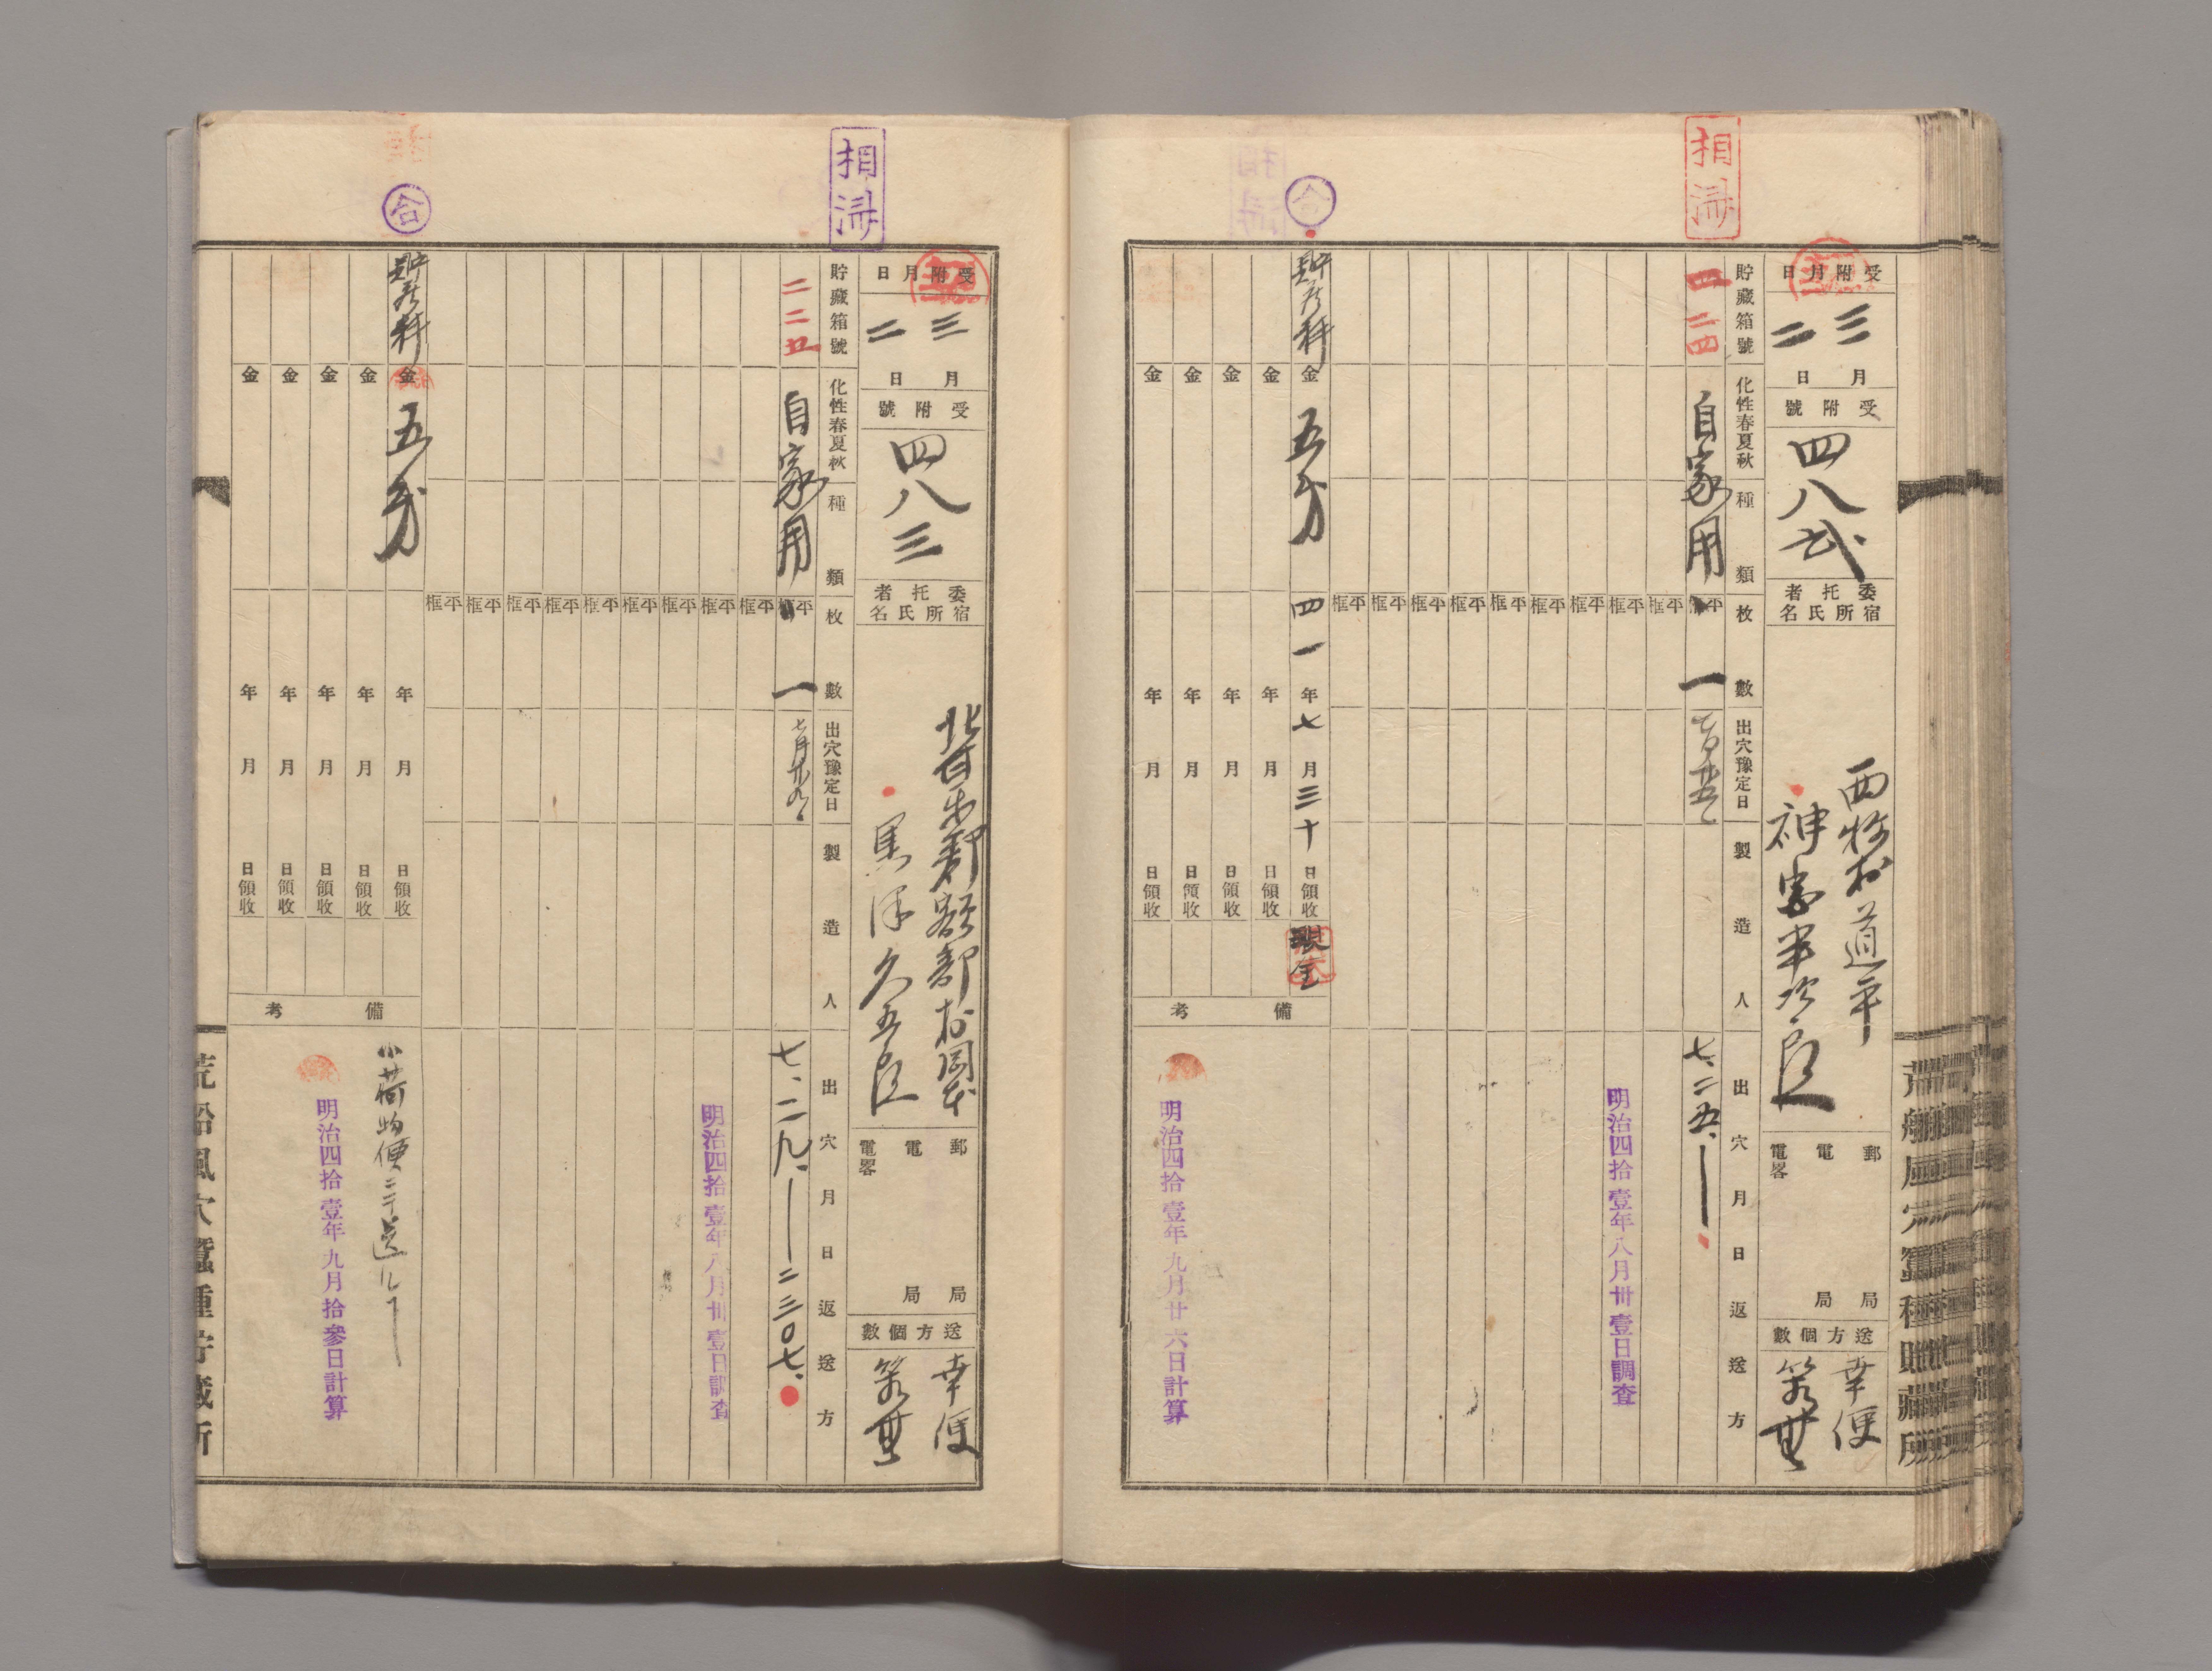 相済
受附月日
三月二日
受附號
四八弐
委托者
宿所氏名
西牧村道平
神宮半次郎
郵局
電局
電畧
送方個數
幸便
貯藏箱號
二四
化性春夏秋種類
自家用
枚數
平框
一
出穴豫定日
製造人
出穴月日返送方
七、二五、
明治四拾壹年八月卅壹日調査
平框
平框
平框
平框
平框
平框
平框
平框
平框
合
貯蔵料
金五戔
四一年七月三十日領收
現金
金 年 月 日領收
金 年 月 日領收
金 年 月 日領收
金 年 月 日領收
備考
明治四拾壹年九月廿六日計算
相済
受附月日
三月二日
受附號
四八三
委托者
宿所氏名
北甘楽郡額部村岡本
黒澤久五郎
郵局
電局
電畧
送方個數
幸便
貯藏箱號
二二五
化性春夏秋種類
自家用
枚數
平框
一
出穴豫定日
七月廿九日
製造人
出穴月日返送方
七、二九、
二三〇七、
明治四拾壹年八月卅壹日調査
平框
平框
平框
平框
平框
平框
平框
平框
平框
合
貯蔵料
金五戔
年 月 日領收
金 年 月 日領收
金 年 月 日領收
金 年 月 日領收
金 年 月 日領收
備考
小荷物便ニテ送
明治四拾壹年九月拾參日計算
荒船風穴蠶種貯藏所